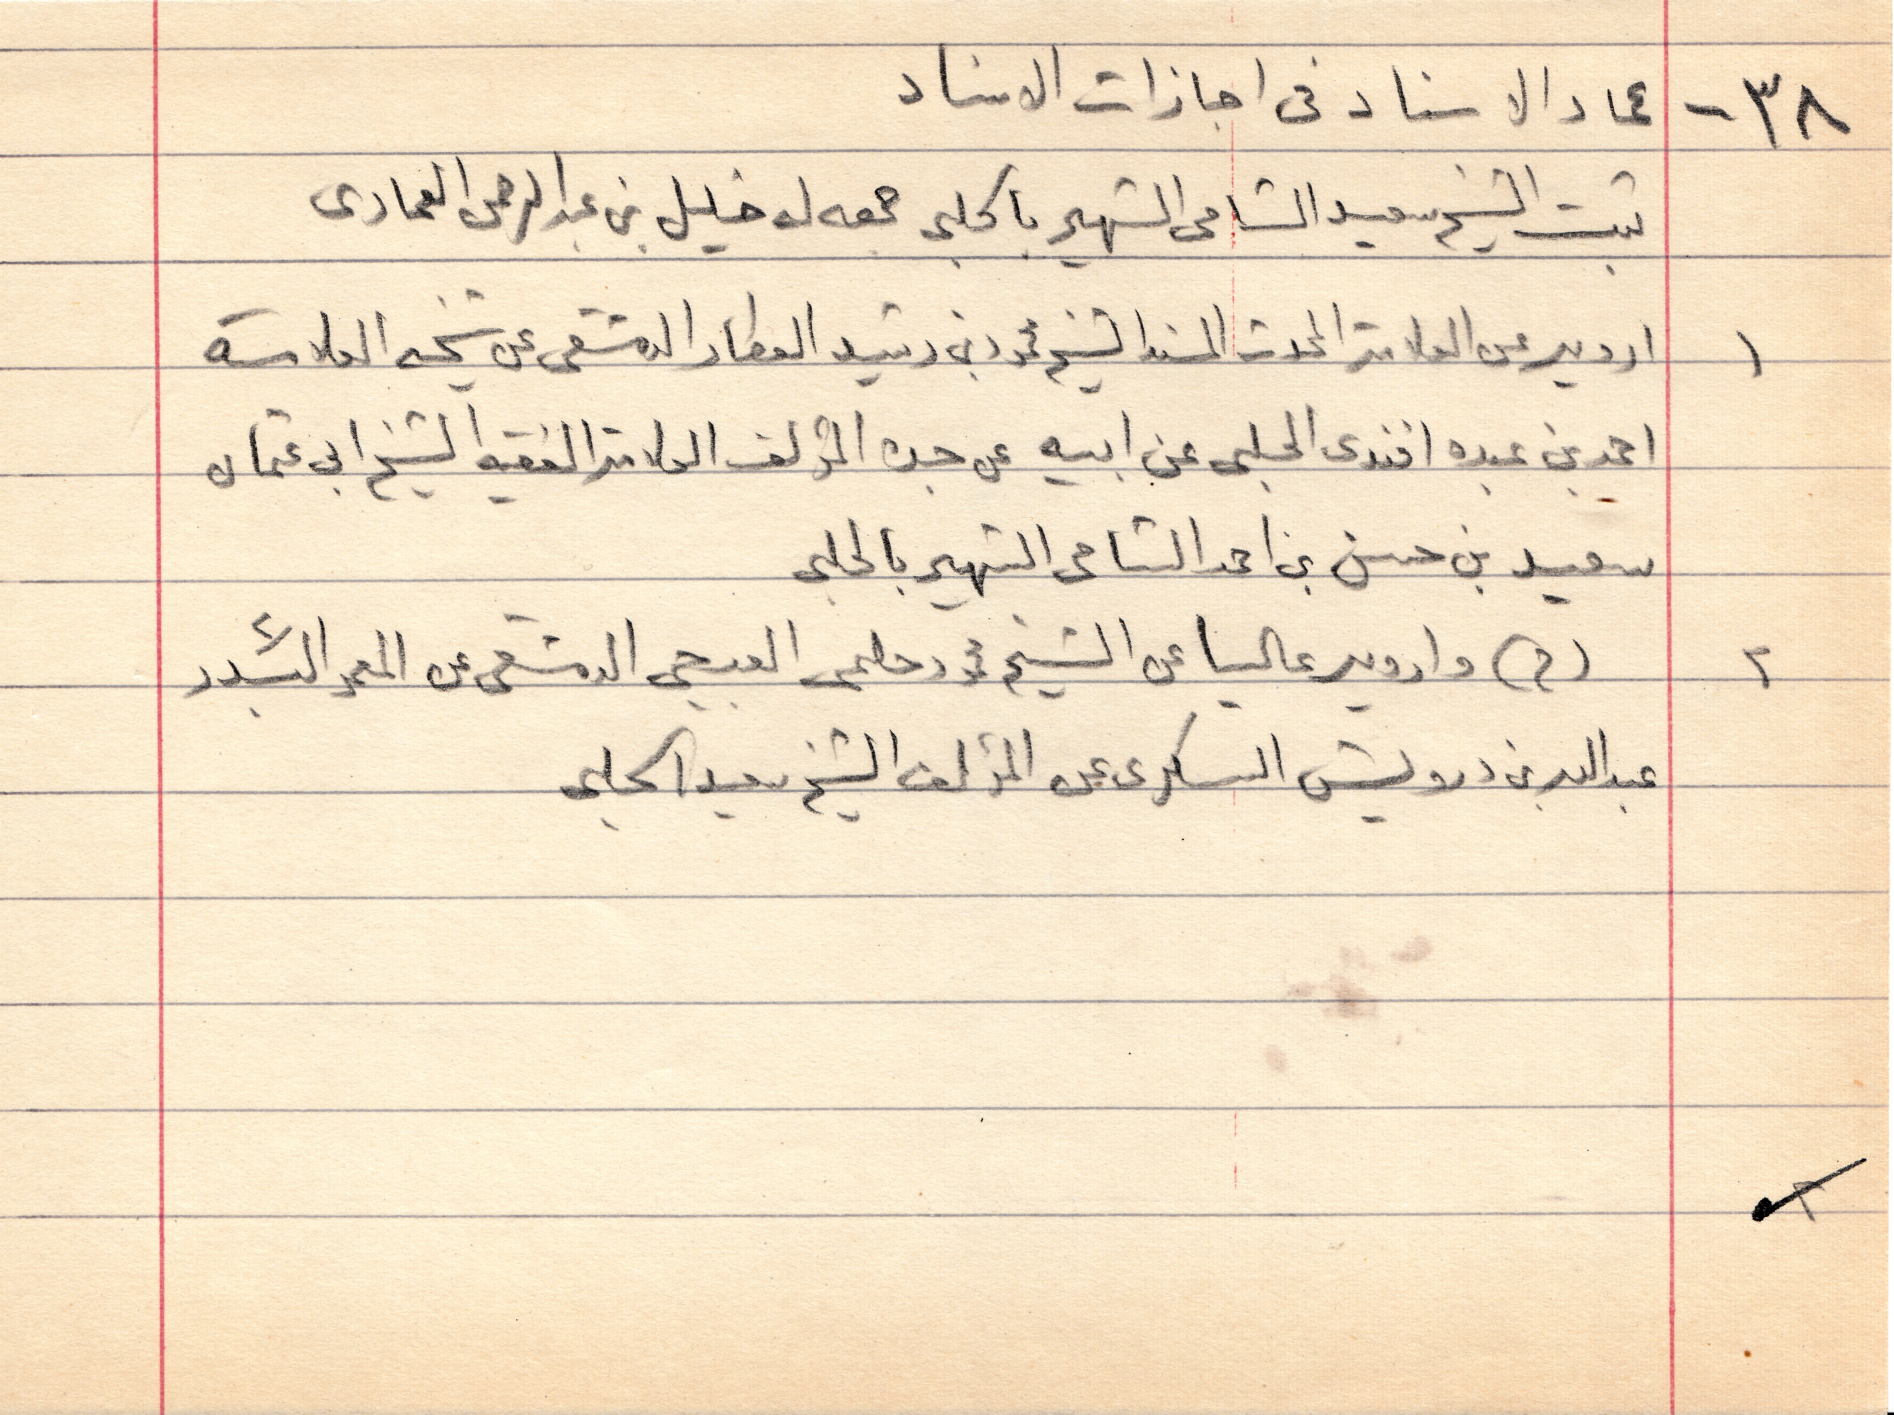 ٣٨ - عماد الاسناد فى اجازات الاسناد
ثبت الشيخ سعيد الشامى الشهير بالحلبى جمعه له خليل بن عبد الرحمن العمادى
١ ارويه عن العلامة المحدث المسند الشيخ محمود بن رشيد العطار الدمشقى عن شيخه العلامة
احمد بن عبده افندى الحلبى عن ابيه عن جده المؤلف العلامة الفقيه الشيخ ابى عثمان
سعيد بن حسن بن احمد الشامى الشهير بالحلبى
٢ (ح) وارويه عاليا عن الشيخ محمود حلمى العبجى الدمشقى عن المعمر السيد
عبد الله بن درويش السكرى عن المؤلف الشيخ سعيد الحلبى
٢